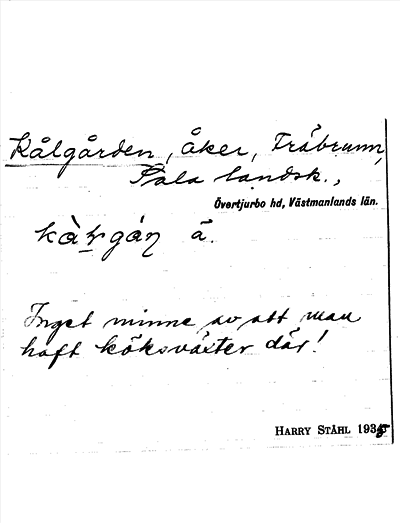 Kålgården, åker, Träbrunn,
Sala landsk.,
Övertjurbo hd, Västmanlands län.
kàɫgáɳ ä.
Inget minne av att man
haft köksväxter där!
HARRY STÅHL 1935